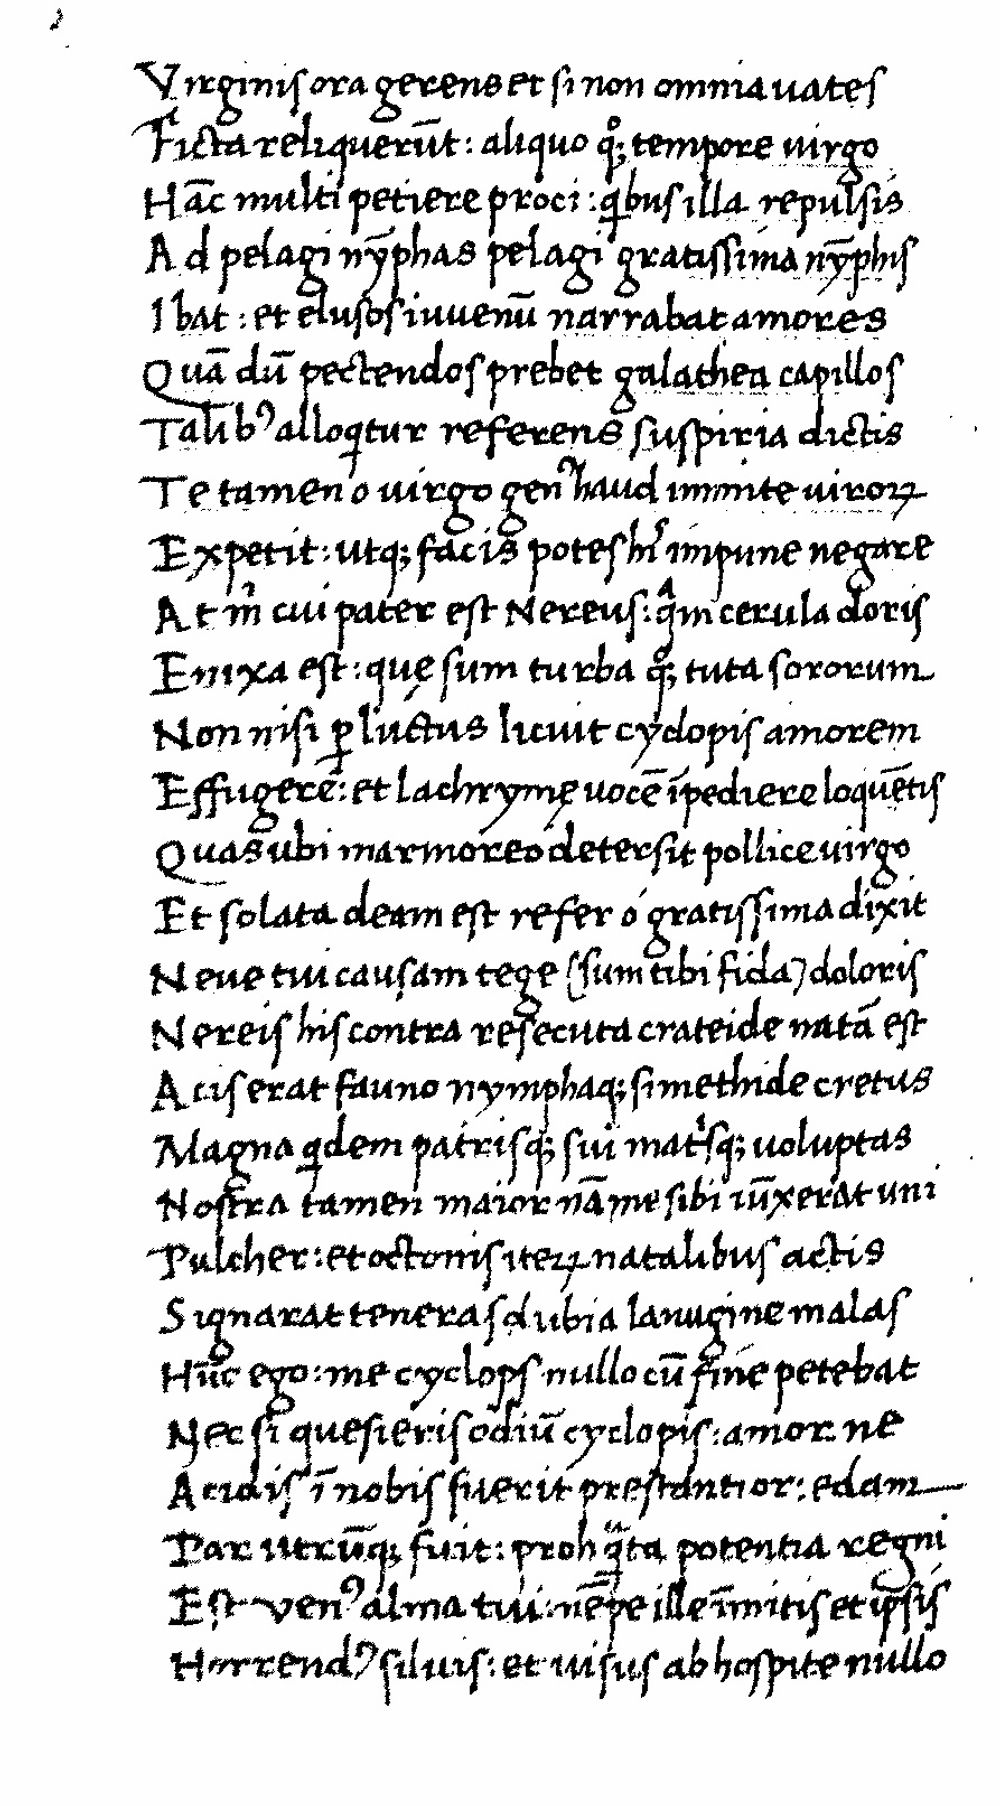 Virginis ora gerens et si non omnia uates
Ficta reliquerūt: aliquo qͦꝫ tempore uirgo
Hāc multi petiere proci: qͥbus illa repulsis
Ad pelagi nȳphas pelagi gratissima nȳphis
Ibat: et elusos iuuenū narrabat amores
Quā dū pectendos prebet galathea capillos
Talibꝰ alloqͥtur referens suspiria dictis
Te tamen o uirgo genꝰ haud immite uiroꝝ
Expetit: utqꝫ facis potes hͥs impune negare
At mͥ cui pater est Nereus: qͣm cerula doris
Enixa est: quę sum turba qͦꝫ tuta sororum
Non nisi ꝑ luctus licuit cyclopis amorem
Effugere: et lachrymę uocē īpediere loquētis
Quas ubi marmoreo detersit pollice uirgo
Et solata deam est refer ó gratissima dixit
Neue tui causam tege (sum tibi fida) doloris
Nereis his contra resecuta crateide natā est
Acis erat fauno nymphaqꝫ simethide cretus
Magna qͥdem patrisqꝫ sui matͥsqꝫ uoluptas
Nostra tamen maior nā me sibi iūxerat uni
Pulcher: et octonis iteꝝ natalibus actis
Signarat teneras dubia lanugine malas
Hūc ego: me cyclops nullo cū fine petebat
Nec si quesieris odiū cyclopis: amor ne
Acidis ī nobis fuerit prestantior: edam
Par utrūqꝫ fuit: proh qͣta potentia regni
Est uenꝰ alma tui: nēpe ille īmitis et ipsis
Horrendꝰ siluis: et uisus ab hospite nullo